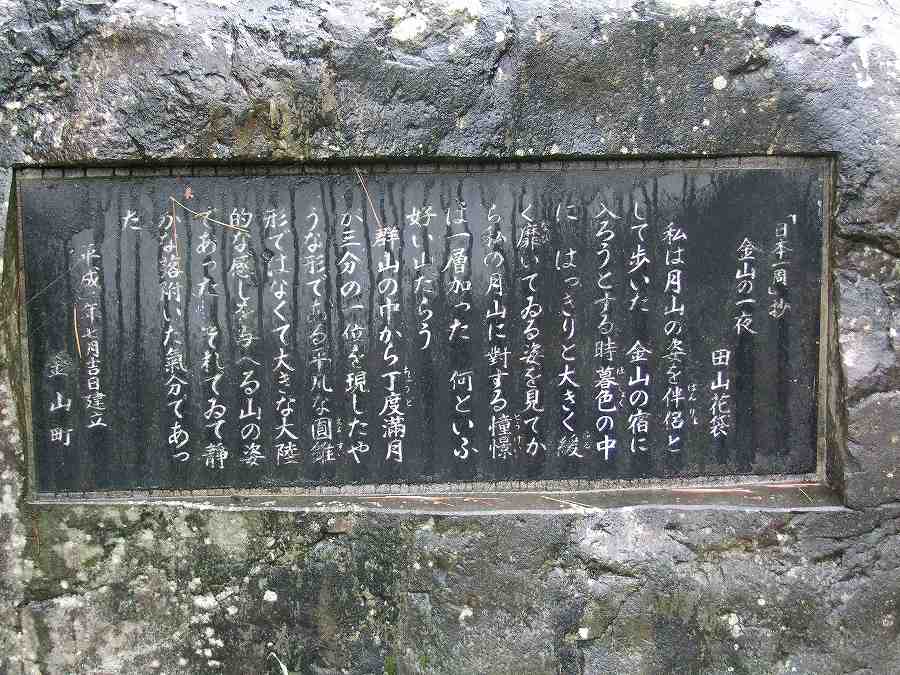 「日本一周」抄
金山の一夜
田山花袋
私は月山の姿を伴侶と
して歩いた 金山の宿に
入ろうとする時暮色の中
に はっきりと大きく緩
く靡いてゐる姿を見てか
ら私の月山に對する憧憬
は一層加った 何といふ
好い山だらう
群山の中から丁度満月
が三分の一位を現したや
うな形である平凡な圓錐
形ではなくて大きな大陸
的な感じを与へる山の姿
であった それでゐて静
かな落附いた氣分であっ
た
平成 年七月吉日建立
金山町